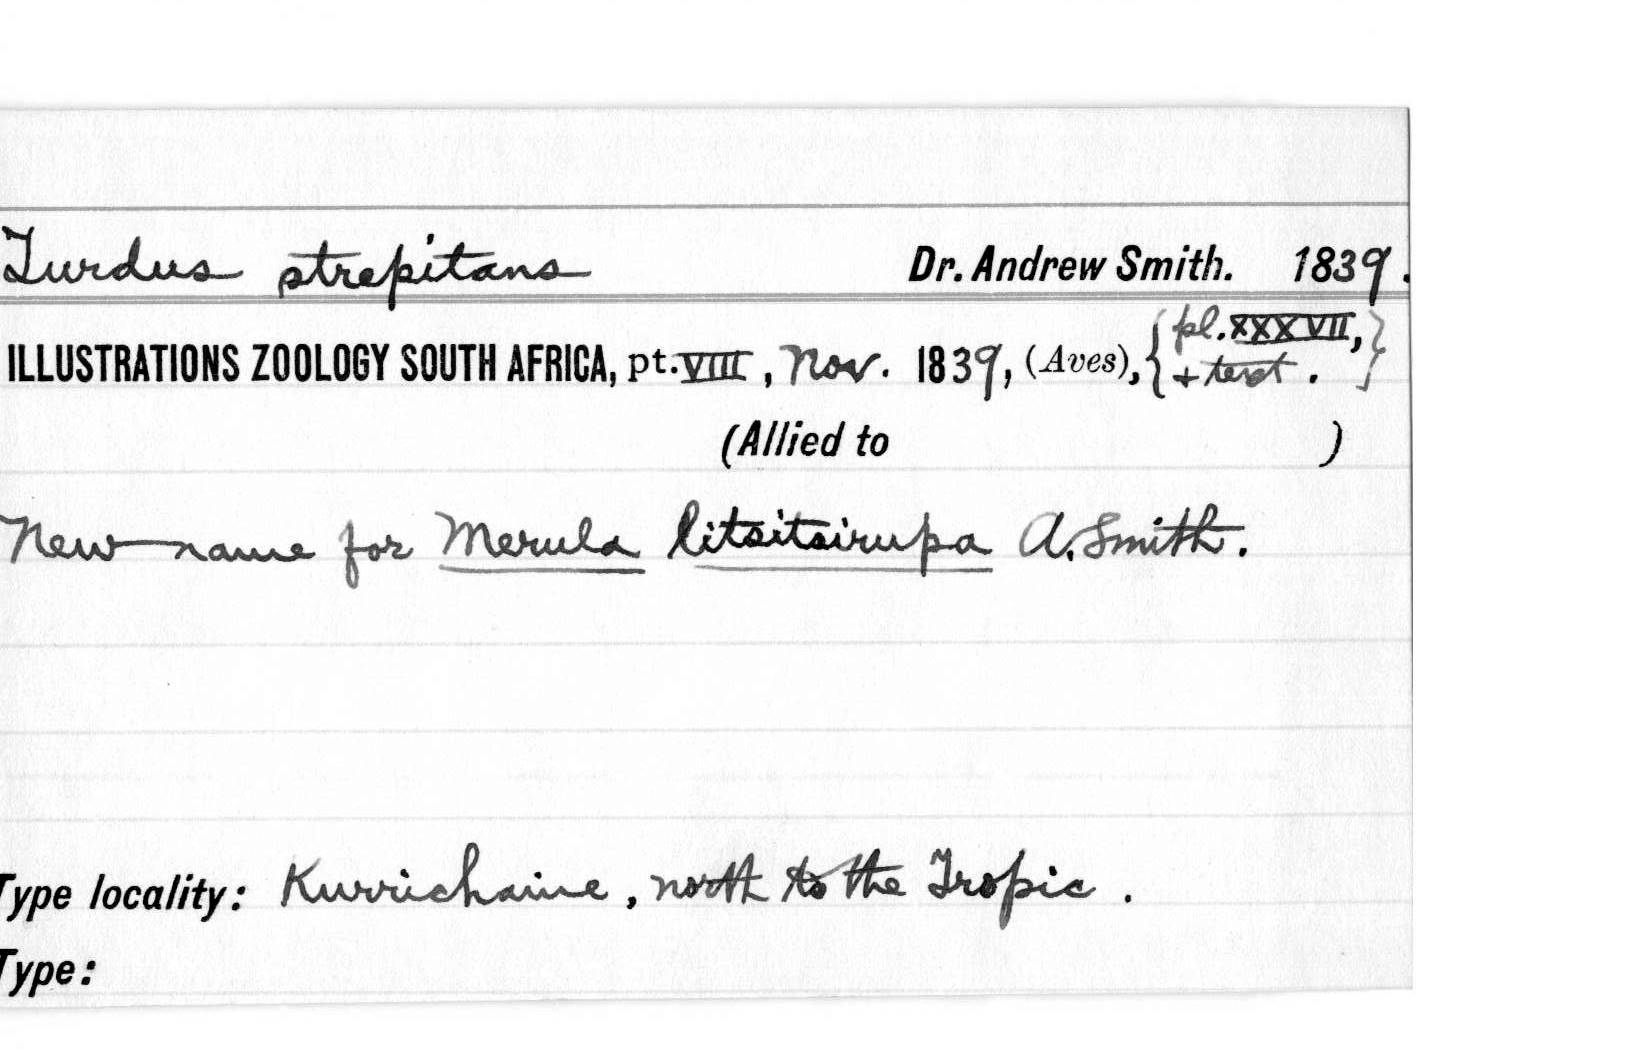 Turdus strepitans Dr. Andrew Smith. 1839.
ILLUSTRATIONS ZOOLOGY SOUTH AFRICA, pt. VIII, Nov. 1839, (Aves), {pl. XXXVII, + text.}
(Allied to )
New name for Merula litsitsirupa A. Smith.
Type locality: Kurrichaine, north to the Tropic.
Type: